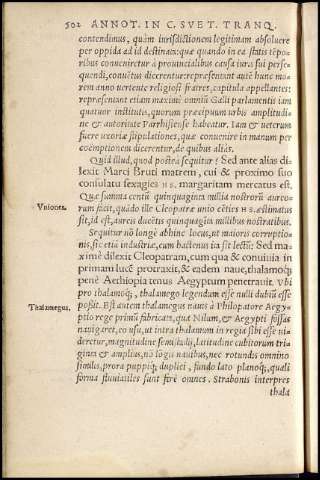 502 ANNOT. IN C. SVET. TRANQ.
contendimus, quàm iurisdictionem legitimam absoluere
per oppida ad id destinata: quæ quando in ea statis tẽpo-
ribus conueniretur à prouincialibus causa iuris sui perse-
quendi, conuẽtus dicerentur: repræsentant autẽ hunc mo-
rem anno vertente religiosi fratres, capitula appellantes:
repræsentant etiam maximè omniũ Galli parlamentis iam
quatuor institutis, quorum præcipuum vrbis amplitudi-
ne & autoritate Parrhisiense habetur. Iam & veterum
fuere vxoriæ stipulationes, quæ conuenire in manum per
coëmptionem dicerentur, de quibus aliàs.
Quid illud, quod postea sequitur? Sed ante alias di-
lexit Marci Bruti matrem, cui & proximo suo
consulatu sexagies HS. margaritam mercatus est,
Vniones. Quæ summa centũ quinquaginta millia nostrorũ aureo-
rum facit, quãdo ille Cleopatræ vnio cẽties HS. æstimatus
sit, id est, aureis ducẽtis quinquagĩta millibus nostratibus.
Sequitur nõ longè abhinc locus, vt maioris corruptio-
nis, sic etiã industriæ, cum hactenus ita sit lectũ: Sed ma-
ximè dilexit Cleopatram, cum qua & conuiuia in
primam lucẽ protraxit, & eadem naue, thalamoq;
penè Aethiopia tenus Aegyptum penetrauit. Vbi
pro thalamoq;, thalamego legendum esse nulli dubiũ esse
Thalamegus. possit. Est autem thalamegus nauis à Philopatore Aegy-
ptio rege primũ fabricata, quæ Nilum, & Aegypti fossas
nauigaret, eo vsu, vt intra thalamum in regia sibi esse vi-
deretur, magnitudine semistadij, latitudine cubitorum tri-
ginta & amplius, nõ lõgis nauibus, nec rotundis omnino
similis, prora puppiq; duplici, fundo lato planoq;, quali
forma fluuiatiles sunt ferè omnes. Strabonis interpres
thala